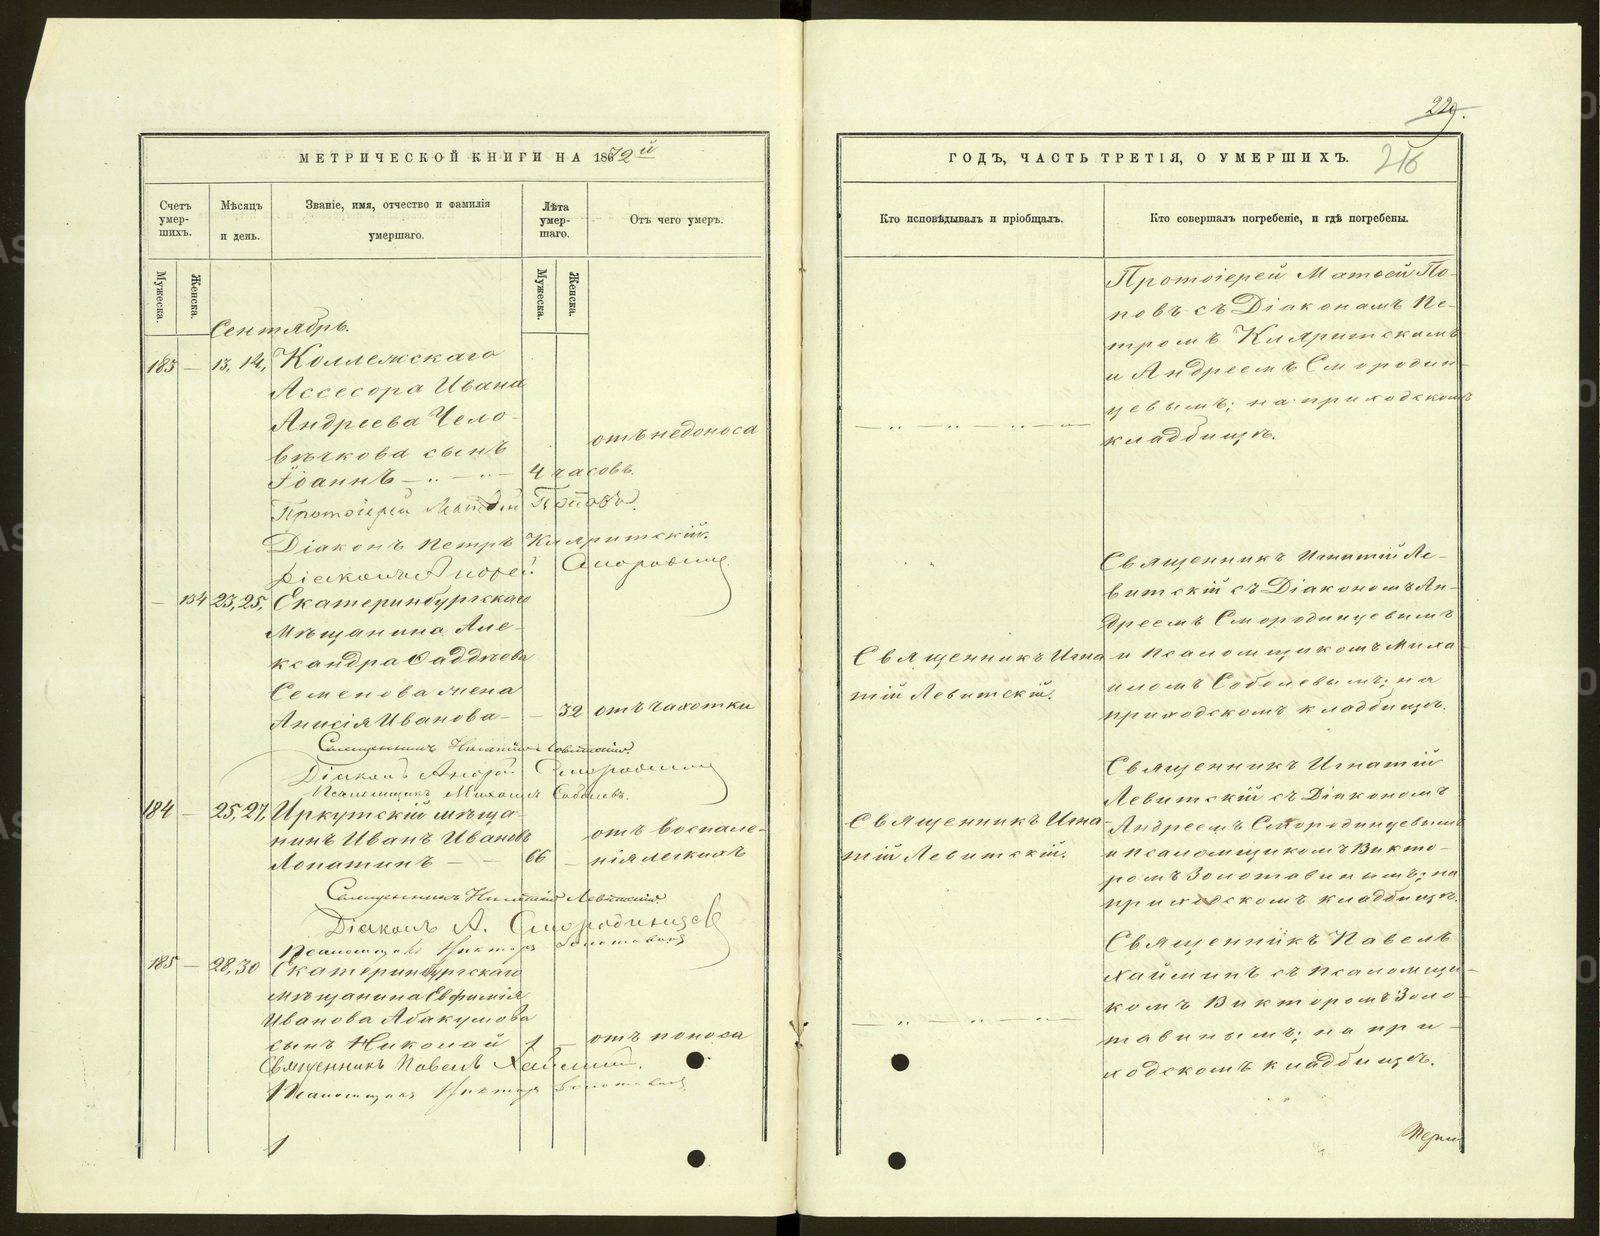 229.
216
МЕТРИЧЕСКОЙ КНИГИ НА 1872й
ГОДЪ, ЧАСТЬ ТРЕТІЯ, О УМЕРШИХЪ.
Счетъ умер-шихъ.
Мѣсяцъ и день.
Званіе, имя, отчество и фамилія умершаго.
Лѣта умер-шаго.
Отъ чего умеръ.
Кто исповѣдывалъ и пріобщалъ.
Кто совершалъ погребеніе, и гдѣ погребены.
Мужеска.
Женска.
Мужеска.
Женска.
Сентябрь.
183 — 13, 14, Коллежскаго
Ассесора Ивана
Андреева Чело-
вѣчкова сынъ
Іоаннъ — 4 часовъ.
отъ недоноса
Протоіерей Матѳій Поповъ.
Діаконъ Петръ Кляритскій.
Діаконъ Андрей Смородинц
Протоіерей Матѳей По-
повъ съ Діаконамъ Пе-
тромъ Кляритскимъ
и Андреемъ Смородин-
цевымъ; на приходскомъ
кладбищѣ.
— 134 23, 25, Екатеринбургскаго
Мѣщанина Але-
ксандра Ѳаддѣева
Семенова жена
Анисія Иванова — — 32 отъ чахотки
Священникъ Игнатій Левитскій.
Діаконъ Андрей Смородинц
Псаломщикъ Михаилъ Соболевъ.
Священникъ Игна
тій Левитскій.
Священникъ Игнатій Ле-
витскій съ Діакономъ Ан-
дреемъ Смородинцевымъ
и Псаломщикомъ Миха-
иломъ Соболевымъ; на
приходскомъ кладбищѣ.
184 — 25, 27, Иркутскій мѣща-
нинъ Иванъ Ивановъ
Лопатинъ — — 66 —
отъ воспале-
нія легкихъ
Священникъ Игнатій Левитскій
Діаконъ А. Смородинцевъ
Псаломщикъ Викторъ Золотавинъ
Священникъ Игна-
тій Левитскій.
Священникъ Игнатій
Левитскій съ Діакономъ
Андреемъ Смородинцевымъ
и псаломщикомъ Викто-
ромъ Золотавинымъ; на
приходскомъ кладбищѣ.
185 — 28, 30 Екатеринбургскаго
мѣщанина Евфимія
Иванова Абакумова
сынъ Николай 1 — отъ поноса
Священникъ Павелъ Хайминъ.
Псаломщикъ Викторъ Золотавинъ
Священникъ Павелъ
Хайминъ съ псаломщи-
комъ Викторомъ Золо-
тавинымъ; на при-
ходскомъ кладбищѣ.